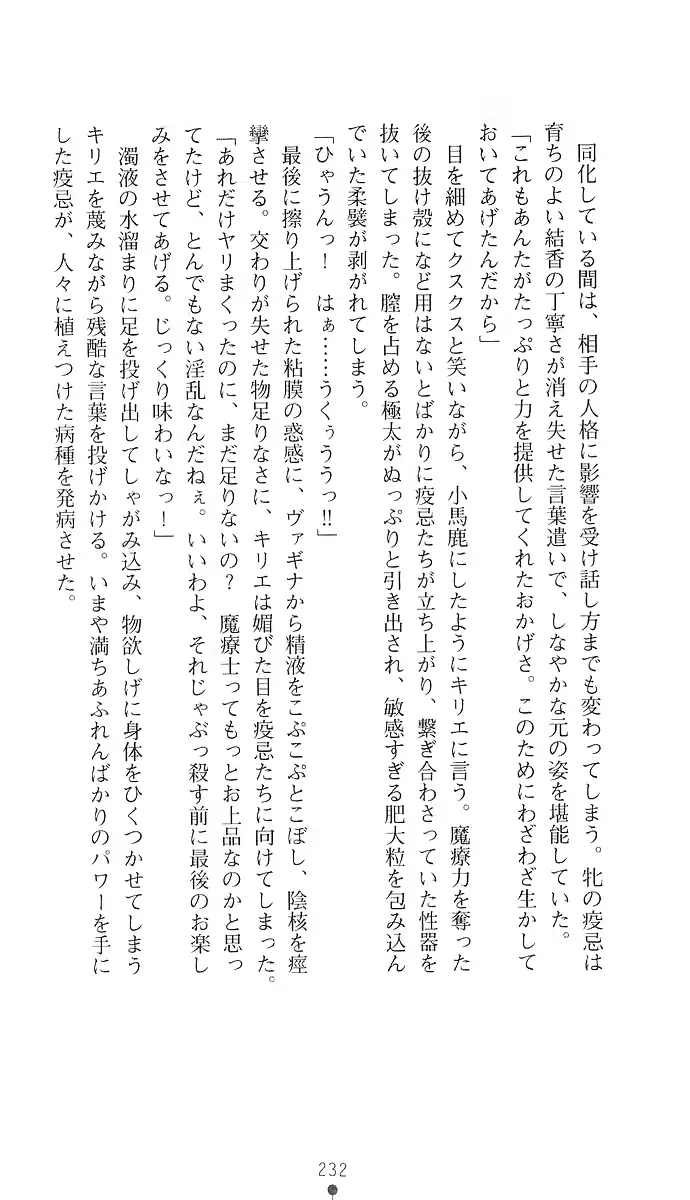 同化している間は、相手の人格に影響を受け話し方までも変わってしまう。牝の疫忌は
育ちのよい結香の丁寧さが消え失せた言葉遣いで、しなやかな元の姿を堪能していた。
「これもあんたがたっぷりと力を提供してくれたおかげさ。このためにわざわざ生かして
おいてあげたんだから」
　目を細めてクスクスと笑いながら、小馬鹿にしたようにキリエに言う。魔療力を奪った
後の抜け殻になど用はないとばかりに疫忌たちが立ち上がり、繋ぎ合わさっていた性器を
抜いてしまった。膣を占める極太がぬっぷりと引き出され、敏感すぎる肥大粒を包み込ん
でいた柔襞が剥がれてしまう。
「ひゃうんっ！　はぁ……うくぅううっ!!」
　最後に擦り上げられた粘膜の惑感に、ヴァギナから精液をこぷこぷとこぼし、陰核を痙
攣させる。交わりが失せた物足りなさに、キリエは媚びた目を疫忌たちに向けてしまった。
「あれだけヤリまくったのに、まだ足りないの？　魔療士ってもっとお上品なのかと思っ
てたけど、とんでもない淫乱なんだねぇ。いいわよ、それじゃぶっ殺す前に最後のお楽し
みをさせてあげる。じっくり味わいなっ！」
　濁液の水溜まりに足を投げ出してしゃがみ込み、物欲しげに身体をひくつかせてしまう
キリエを蔑みながら残酷な言葉を投げかける。いまや満ちあふれんばかりのパワーを手に
した疫忌が、人々に植えつけた病種を発病させた。
232